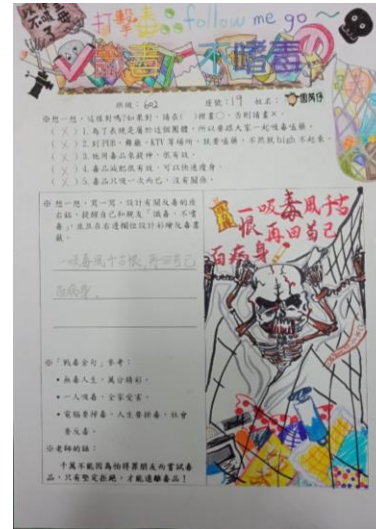 打擊毒 follow me go~
識毒，不嗜毒
班級：602 座號：19 姓名：
※想一想，這樣對嗎?如果對，請在( )裡畫○，否則請畫×。
(×)1.為了表現是屬於這個團體，所以要跟大家一起吸毒嗑藥。
(×)2.到PUB、舞廳、KTV等場所，就要嗑藥，不然就high不起來。
(×)3.施用毒品來提神，很有效。
(×)4.毒品減肥很有效，可以快速瘦身。
(×)5.毒品只吸一次而已，沒有關係。
※想一想，寫一寫，設計有關反毒的座
右銘，提醒自己和親友「識毒，不嗜
毒」，並且在右邊欄位設計彩繪反毒書
籤。
一吸毒成千古恨，再回首已
百病身。
※「戰毒金句」參考：
•無毒人生，萬分精彩。
•一人吸毒，全家受害。
•電腦要掃毒，人生要拒毒，社會
要反毒。
※老師的話：
千萬不能因為怕得罪朋友而嘗試毒
品，只有堅定拒絕，才能遠離毒品！
一吸毒成千古
恨再回首已
百病身